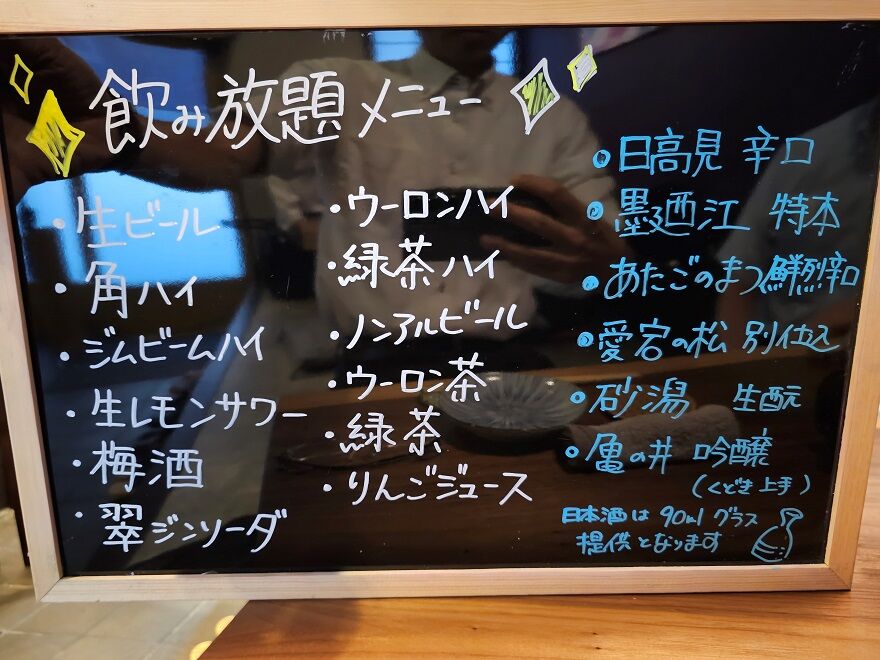 飲み放題メニュー
・生ビール
・角ハイ
・ジムビームハイ
・生レモンサワー
・梅酒
・翠ジンソーダ
・ウーロンハイ
・緑茶ハイ
・ノンアルビール
・ウーロン茶
・緑茶
・りんごジュース
・日高見 辛口
・墨廼江 特本
・あたごのまつ 鮮烈辛口
・愛宕の松 別仕込
・砂潟 生酛
・亀の井 吟醸
(くどき上手)
日本酒は 90ml グラス
提供となります